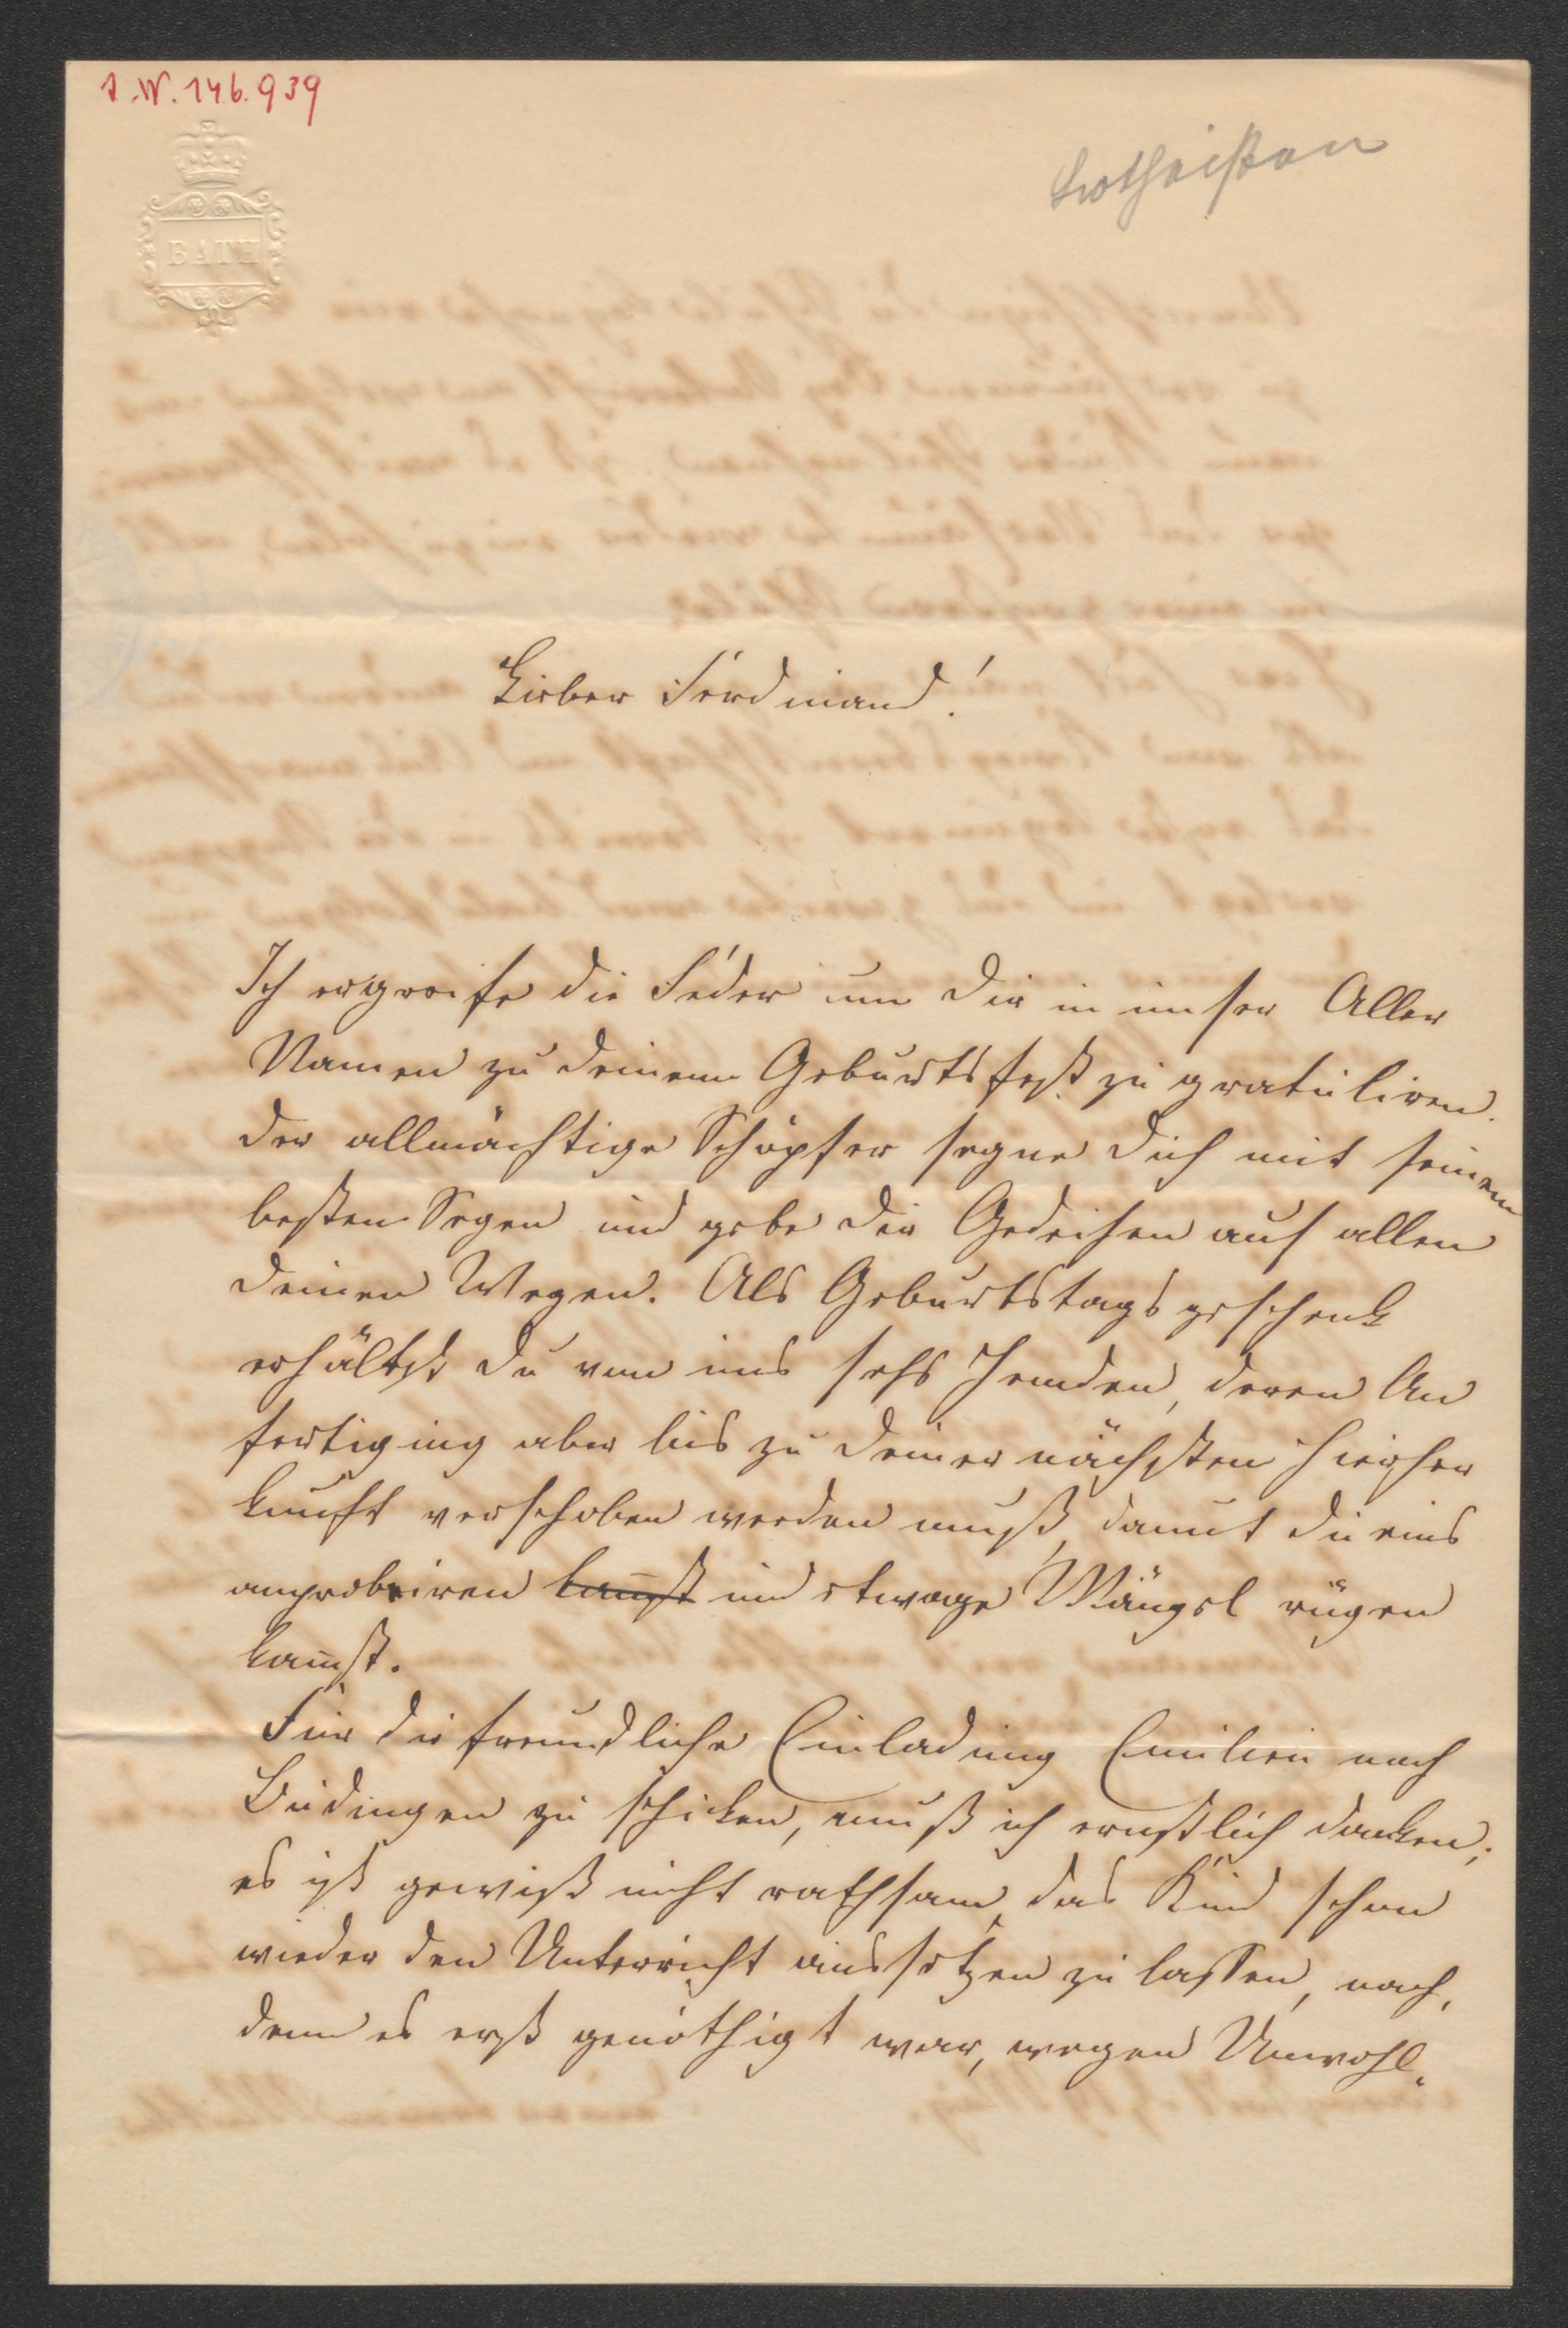 J.N. 146.939
BATH
Lieber Ferdinand!
Ich ergreife die Feder um Dir in unser Aller
Namen zu Deinem Geburtsfest zu gratuliren.
der allmächtige Schöpfer segne Dich mit seinem
besten Segen und gebe Dir Gedeihen auf allen
Deinen Wegen. Als Geburtstagsgeschenk
erhältst Du von uns sechs Hemden, deren An
fertigung aber bis zu Deiner nächsten Hierher
kunft verschoben werden muß, damit Du eins
anprobiren kannst und etwage Mängel rügen
kannst.
Für die freundliche Einladung Emilien nach
Büdingen zu schicken, muß ich ernstlich danken;
es ist gewiß nicht rathsam, das Kind schon
wieder den Unterricht aussetzen zu lassen, nach,
dem es erst genöthigt war, wegen Unwohl,